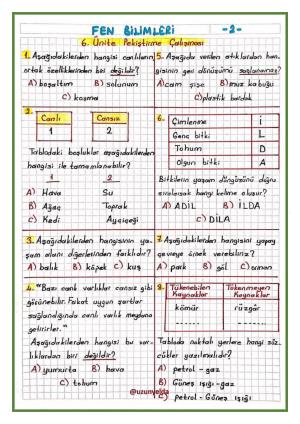 FEN BİLİMLERİ -2-
6. Ünite Pekiştirme Çalışması
1. Aşağıdakilerden hangisi canlıların
ortak özelliklerinden biri değildir?
A) boşaltım B) solunum
C) koşma
2.
Canlı Cansız
1 2
Tablodaki başlıklar aşağıdakilerden
hangisi ile tamamlanabilir?
1 2
A) Hava Su
B) Ağaç Toprak
C) Kedi Ayçiçeği
3. Aşağıdakilerden hangisinin ya-
şam alanı diğerlerinden farklıdır?
A) balık B) köpek C) kuş
4. "Bazı canlı varlıklar cansız gibi
görünebilir. Fakat uygun şartlar
sağlandığında canlı varlık meydana
getirirler."
Aşağıdakilerden hangisi bu var-
lıklardan biri değildir?
A) yumurta B) hava
C) tohum
5. Aşağıda verilen atıklardan han-
gisinin geri dönüşümü sağlanamaz?
A) cam şişe B) muz kabuğu
C) plastik bardak
6.
Çimlenme İ
Genç bitki L
Tohum D
Olgun bitki A
Bitkilerin yaşam döngüsünü doğru
sıralarsak hangi kelime oluşur?
A) ADİL B) İLDA
C) DİLA
7. Aşağıdakilerden hangisini yapay
çevreye örnek verebiliriz?
A) park B) göl C) orman
8.
Tükenebilen Kaynaklar Tükenmeyen Kaynaklar
kömür rüzgâr
Tabloda noktalı yerlere hangi söz-
cükler yazılmalıdır?
A) petrol - gaz
B) Güneş ışığı - gaz
C) petrol - Güneş ışığı